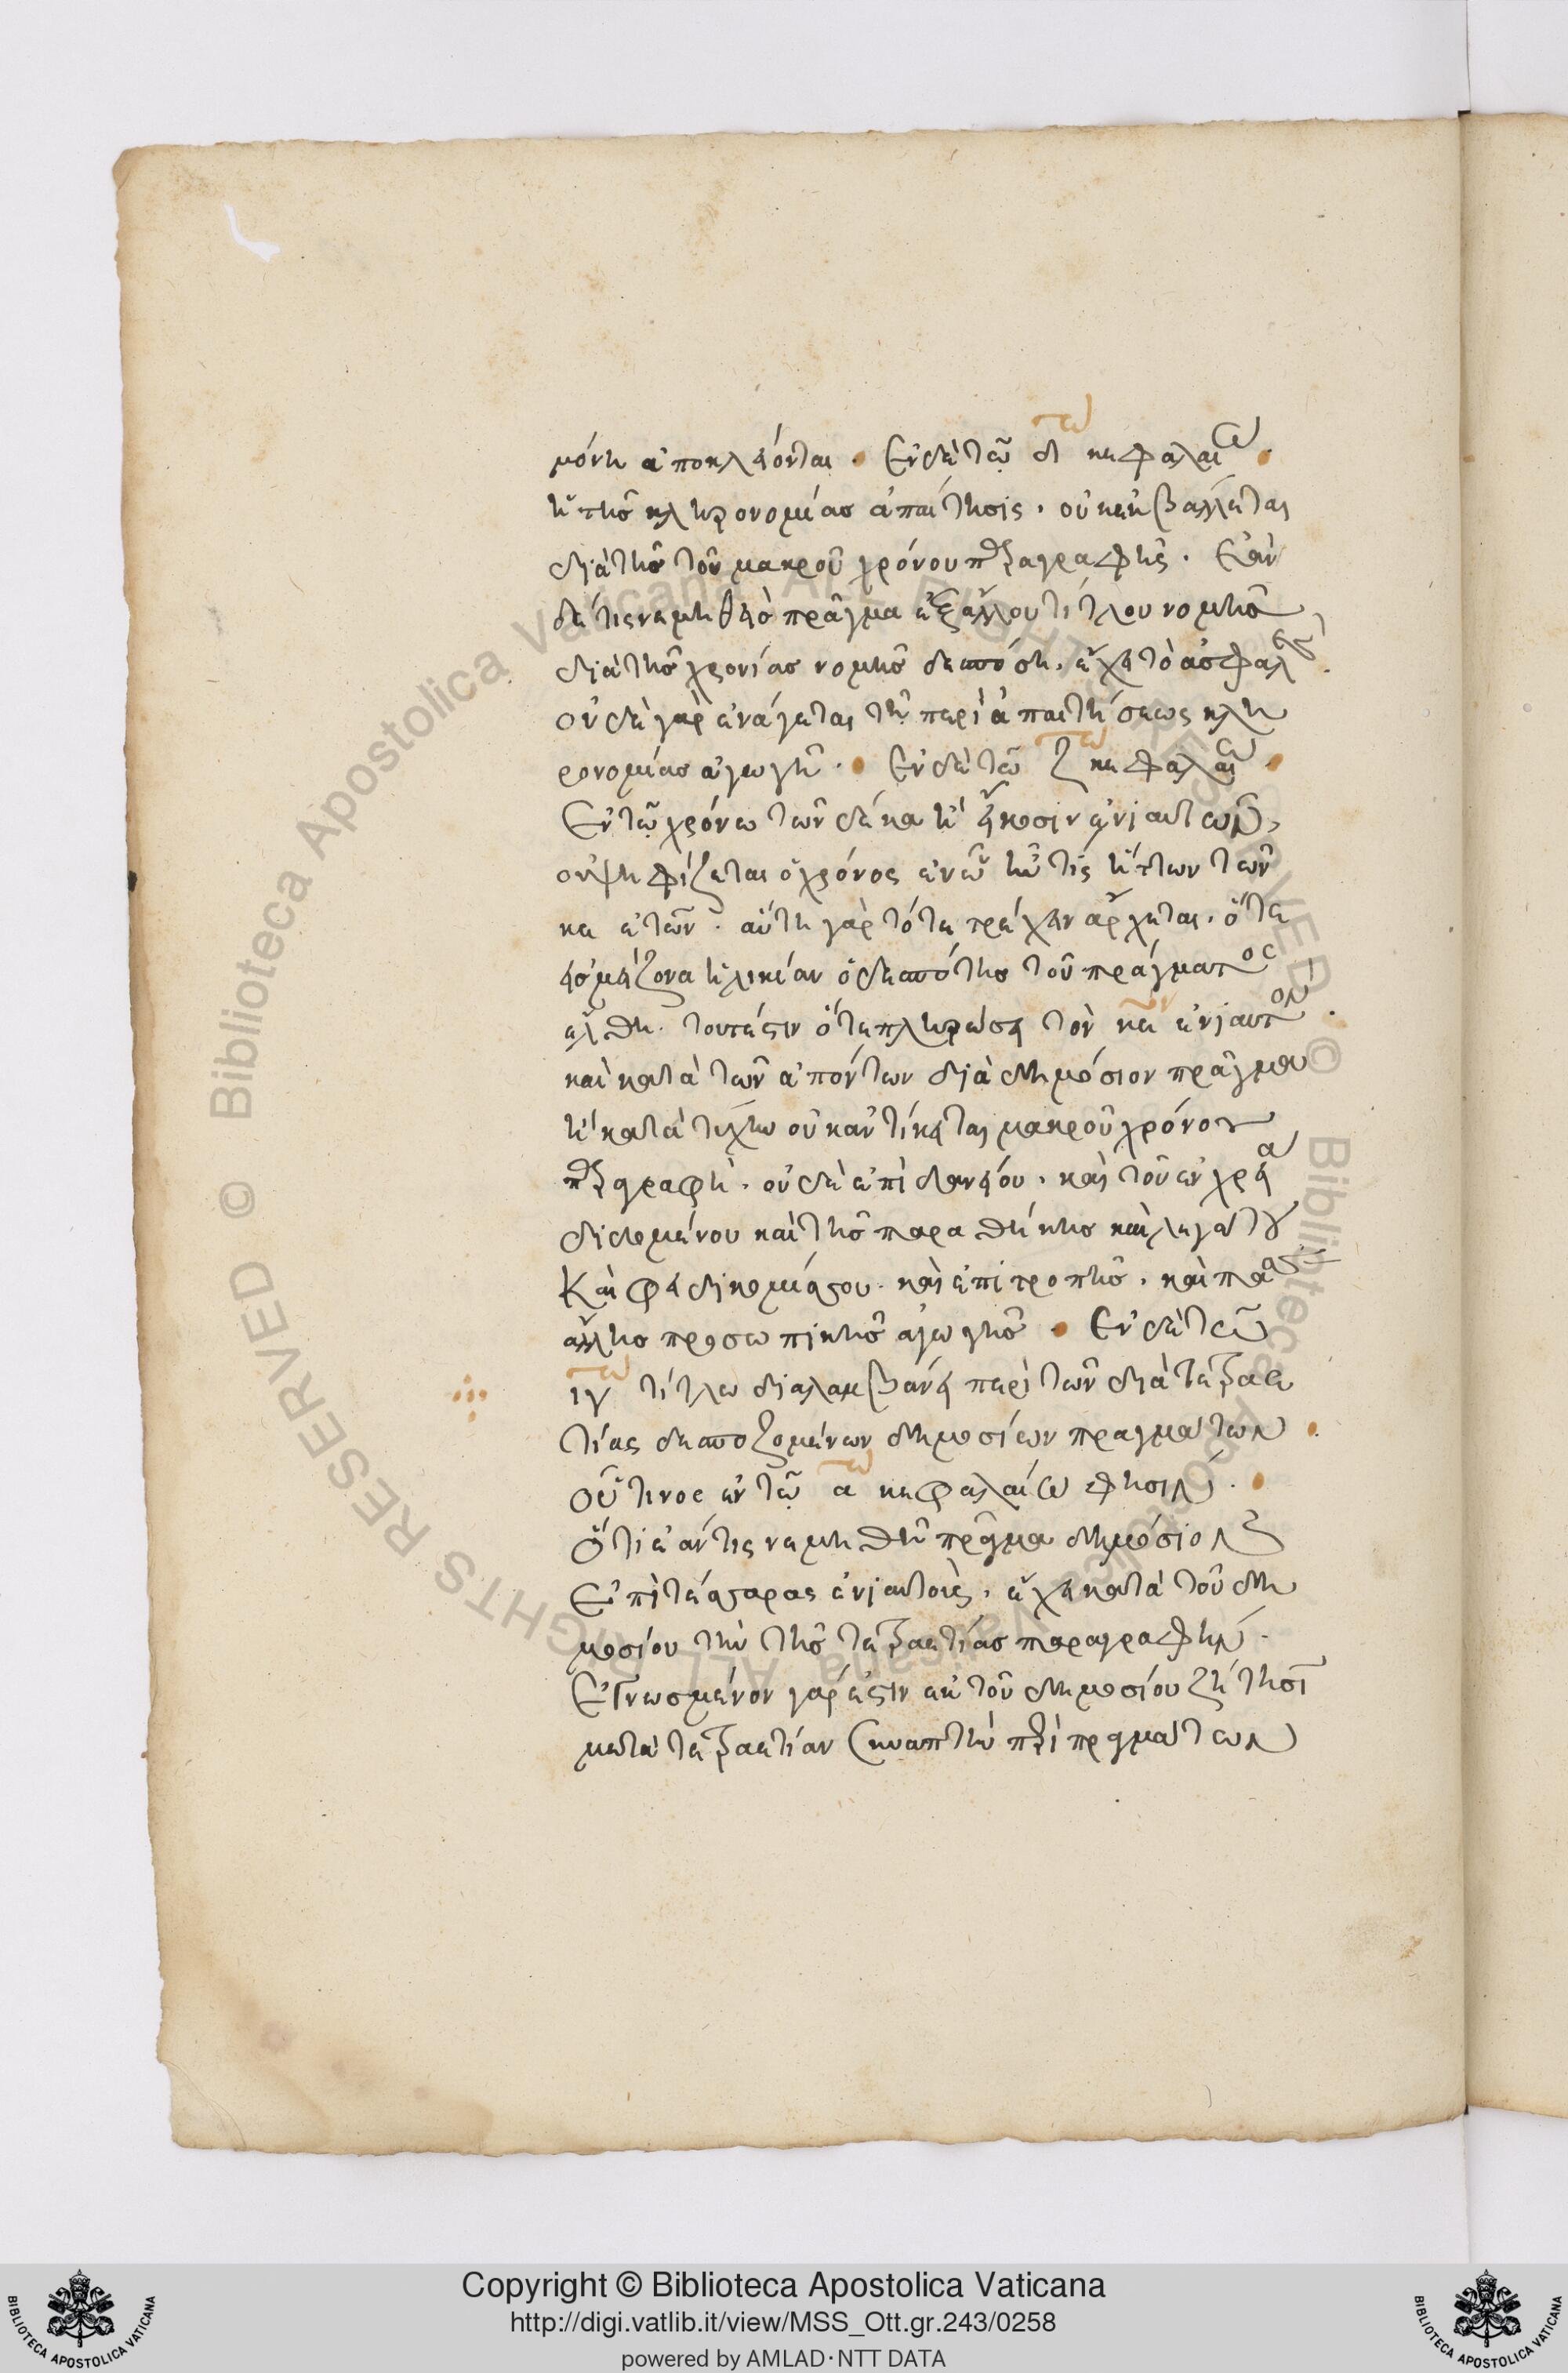 μόνη ἀποκλείονται. Ἐν δὲ τῷ δ τῳ κεφαλαίῳ.
ἡ τῆς κληρονομίας ἀπαίτησις, οὐκ ἐκβάλλεται
διὰ τῆς τοῦ μακροῦ χρόνου παραγραφῆς. Ἐὰν
δέ τις νεμηθεὶς πρᾶγμα ἐξ ἄλλου τίτλου νομῆς
διὰ τῆς χρονίας νομῆς δεσπόση, ἔχει τὸ ἀσφαλές.
οὐδὲ γὰρ ἐνάγεται τῇ περὶ ἀπαιτήσεως κλη
ρονομίας ἀγωγῇ. Ἐν δὲ τῷ ζ τῳ κεφαλαίῳ.
Ἐν τῷ χρόνω τῶν δέκα ἢ εἴκοσιν ἐνιαυτῶν,
οὐ ψηφίζεται ὁ χρόνος ἐν ᾧ ἦν τίς ἥττων τῶν
κε ἐτῶν. αὕτη γὰρ τότε τρέχειν ἄρχεται, ὅτε
εἰς μείζονα ἡλικίαν ὁ δεσπότης τοῦ πράγματος
ἔλθη. τουτέστιν ὅτε πληρώσει τὸν κε ἐνιαυτόν.
καὶ κατὰ τῶν ἀπόντων διὰ δημόσιον πρᾶγμα
ἢ κατὰ τύχην οὐκ ἀντίκειται μακροῦ χρόνου
παραγραφὴ. οὐδὲ ἐπὶ δανείου. καὶ τοῦ ἐν χρείᾳ
διδομένου καὶ τῆς παραθήκης καὶ λεγάτου
Καὶ φιδεικομμίσσου. καὶ ἐπιτροπῆς. καὶ πάσης
ἄλλης προσωπικῆς ἀγωγῆς. Ἐν δὲ τῷ
ιγ τῳ τίτλω διαλαμβάνει περὶ τῶν διὰ τετραε
τίας δεσποζομένων δημοσίων πραγμάτων.
οὗτινος ἐν τῷ α τῳ κεφαλαίῳ φησίν.
Ὅτι ἐάν τις νεμηθῇ πρᾶγμα δημόσιον
Ἐπὶ τέσσαρας ἐνιαυτοὺς, ἔχει κατὰ τοῦ δη
μοσίου τὴν τῆς τετραετίας παραγραφήν.
Ἐγνωσμένον γάρ ἐστιν ἐκ τοῦ δημοσίου ζήτησιν
μετὰ τετραετίαν περὶ πραγμάτων